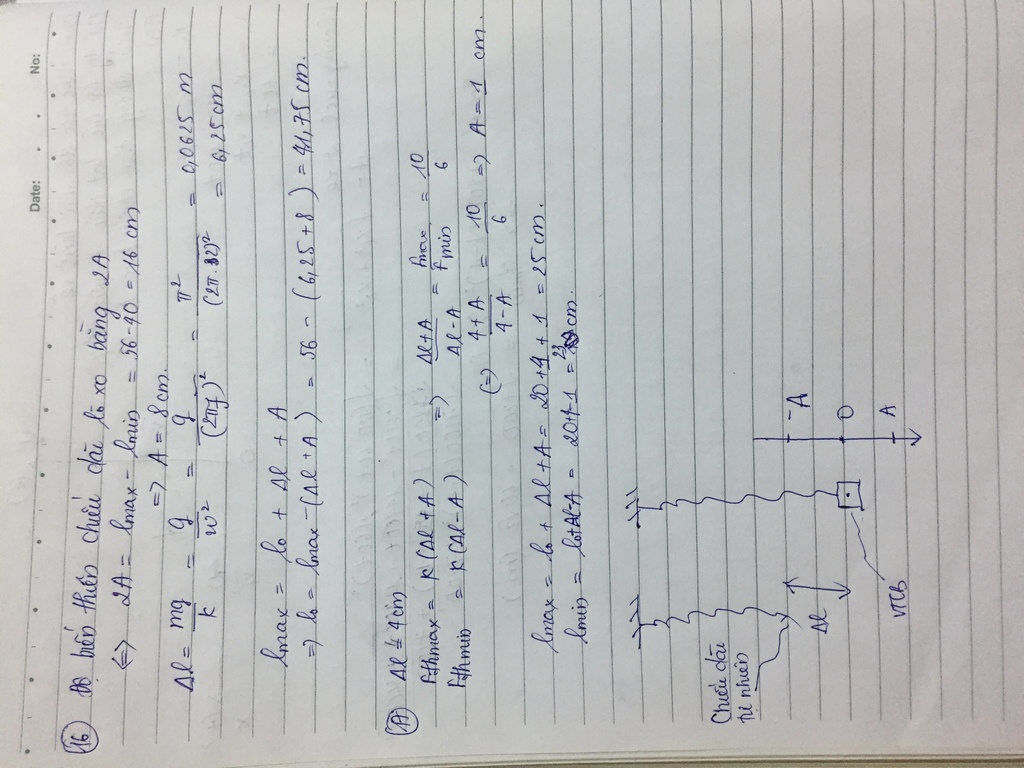 Date: . . No:
16 Độ biến thiên chiều dài lò xo bằng 2A
⇔ 2A = lmax - lmin = 56-40 = 16 cm
=> A = 8cm.
Δl = mg/k = g/w² = g/(2πf)² = π²/(2π.2)² = 0,0625 m
= 6,25cm
lmax = lo + Δl + A
=> lo = lmax -(Δl + A) = 56 - (6,25+8) = 41,75 cm.
17 Δl = 4cm
Fthmax = K(Δl+A) => Δl+A/Δl-A = Fmax/Fmin = 10/6
Fthmin = K(Δl-A)
(=) 4+A/4-A = 10/6 => A = 1 cm.
lmax = lo + Δl + A = 20+4+1 = 25 cm.
lmin = lo+Δl-A = 20+4-1 = 23 cm.
Chiều dài
tự nhiên
-A
Δl
O
VTCB
A